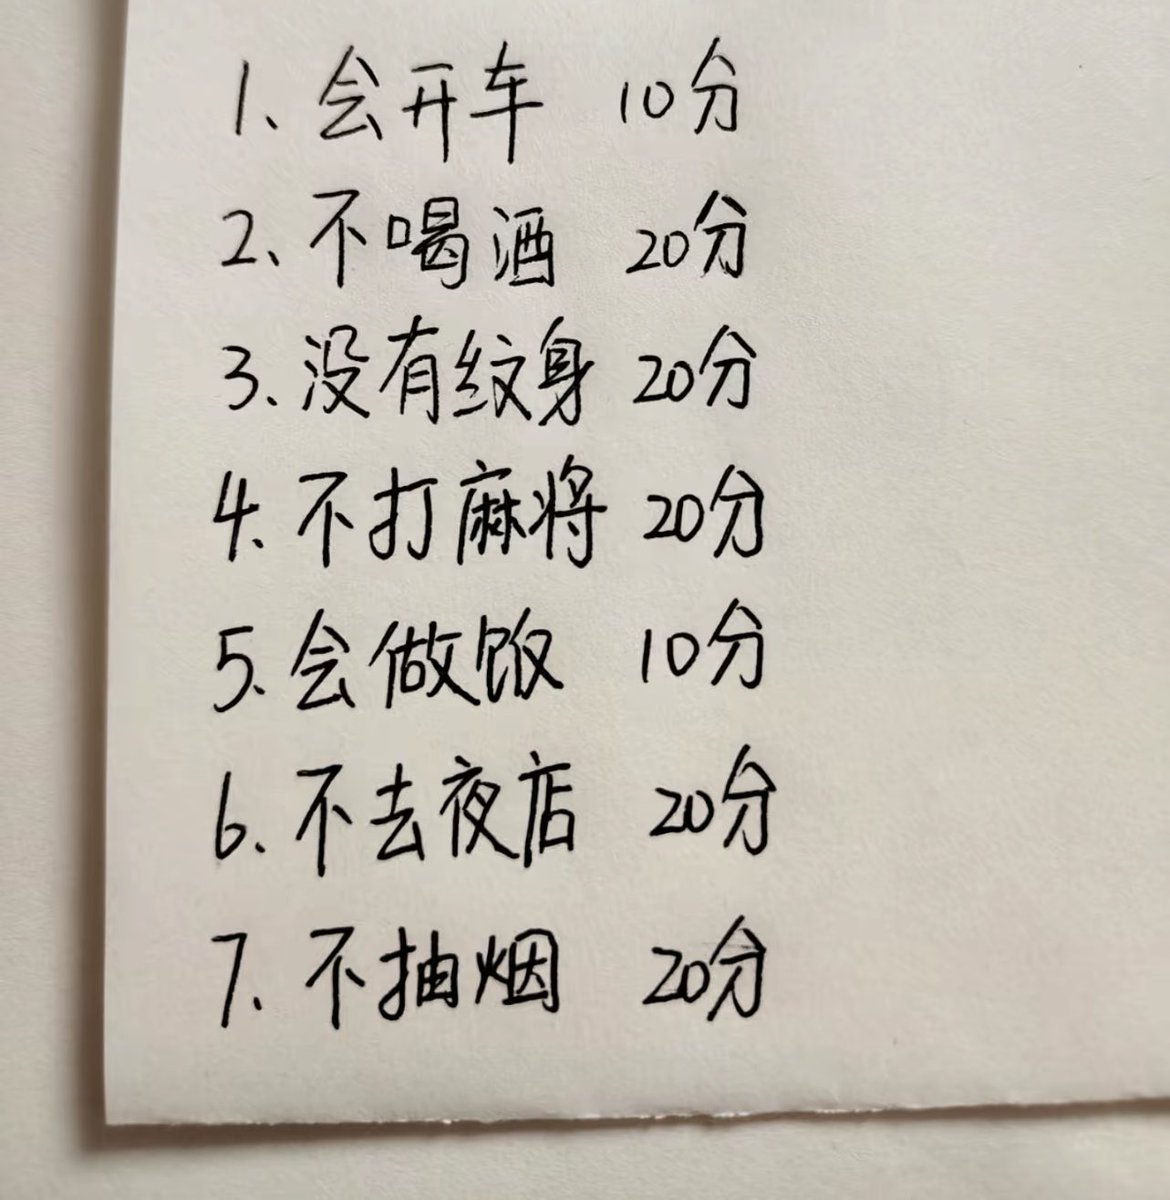 1、会开车 10分
2、不喝酒 20分
3、没有纹身 20分
4、不打麻将 20分
5、会做饭 10分
6、不去夜店 20分
7、不抽烟 20分